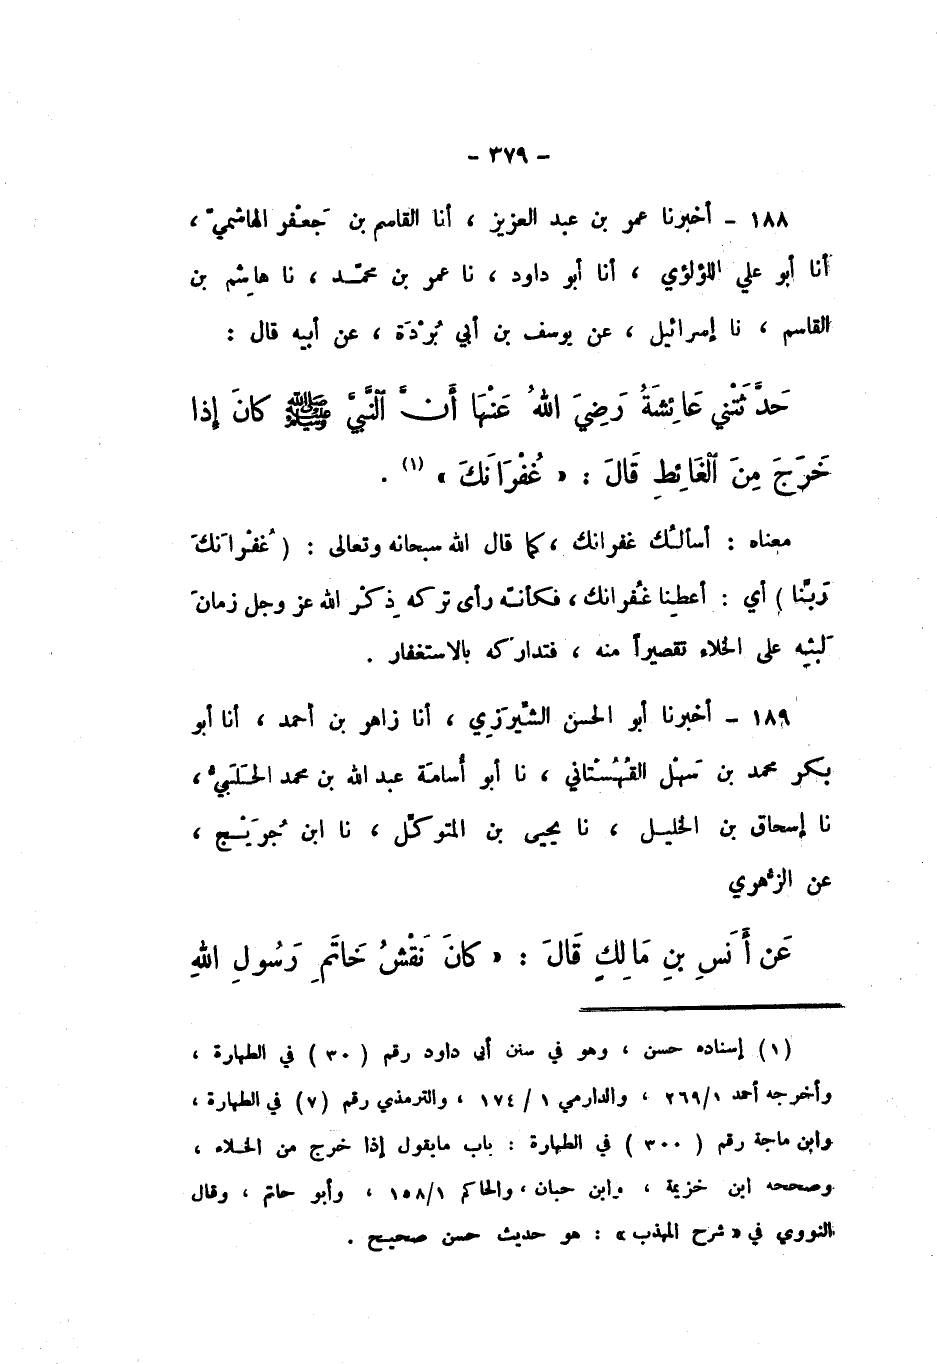 - ٣٧٩ -
١٨٨ - أخبرنا عمر بن عبد العزيز ، أنا القاسم بن جَعْفر الهاشميّ ،
أنا أبو علي اللؤلؤي ، أنا أبو داود ، نا عمر بن محمّد ، نا هاشِم بن
القاسم ، نا إسرائيل ، عن يوسف بن أبي بُرْدَة ، عن أبيه قال :
حَدَّثَتْني عَائِشَةُ رَضِيَ اللهُ عَنْهَا أَنَّ النَّبيَّ ﷺ كانَ إذا
خَرَجَ مِنَ ٱلْغَائِطِ قَالَ : « غُفْرَانَكَ » (١) .
معناه : أسألُك غفرانك ، كما قال الله سبحانه وتعالى : ( غُفْرانَكَ
رَبَّنا ) أي : أعطِنا غُفرانك ، فكأنّه رأى تركه ذِكْر الله عز وجل زمانَ
لَبثِه على الخلاء تقصيراً منه ، فتداركَه بالاستغفار .
١٨٩ - أخبرنا أبو الحسن الشِّيرَزي ، أنا زاهر بن أحمد ، أنا أبو
بكر محمد بن سَهْل القُهُسْتاني ، نا أبو أُسامَة عبد الله بن محمد الحَلَبيُّ ،
نا إسحاق بن الخليل ، نا يحيى بن المتوكّل ، نا ابن جُرَيْج ،
عن الزُّهري
عَن أَنَسِ بنِ مَالِكٍ قَالَ : « كانَ نَقْشُ خَاتَمِ رَسُولِ اللهِ
(١) إسناده حسن ، وهو في سنن أبي داود رقم ( ٣٠ ) في الطهارة ،
وأخرجه أحمد ٢٦٩/١ ، والدارمي ١ / ١٧٤ ، والترمذي رقم (٧) في الطهارة ،
وابن ماجة رقم ( ٣٠٠ ) في الطهارة : باب مايقول إذا خرج من الخلاء ،
وصححه ابن خزيمة ، وابن حبان ، والحاكم ١٥٨/١ ، وأبو حاتم ، وقال
النووي في « شرح المهذب » : هو حديث حسن صحيح .